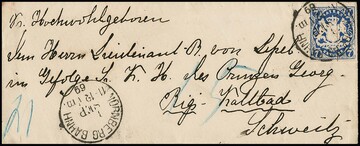 Sr. Hochwohlgeboren
dem Herrn Lieutenant B. von Spel
im Gefolge S. K. H. des Prinzen Georg.
Rigi-Kaltbad
Schweitz
NÜRNBERG BAHNH.
Exp.
11 12
69
BAHNH